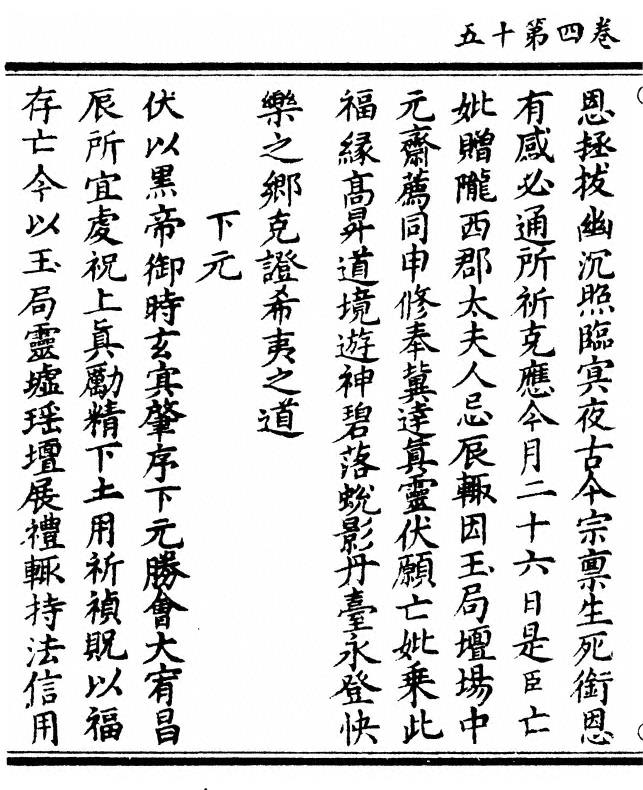 五十第四卷
恩拯拔幽沉照臨冥夜古今宗禀生死銜恩
有感必通所祈克應今月二十六日是臣亡
妣贈隴西郡太夫人忌辰輙因玉局壇場中
元齋薦同申修奉冀達眞靈伏願亡妣乗此
福縁髙昇道境遊神碧落蛻影丹臺永登快
樂之鄉克證希夷之道
下元
伏以黒帝御時玄冥肇序下元勝會大宥昌
辰所宜虔祝上眞勵精下土用祈禎貺以福
存亡今以玉局靈墟瑶壇展禮輙持法信用